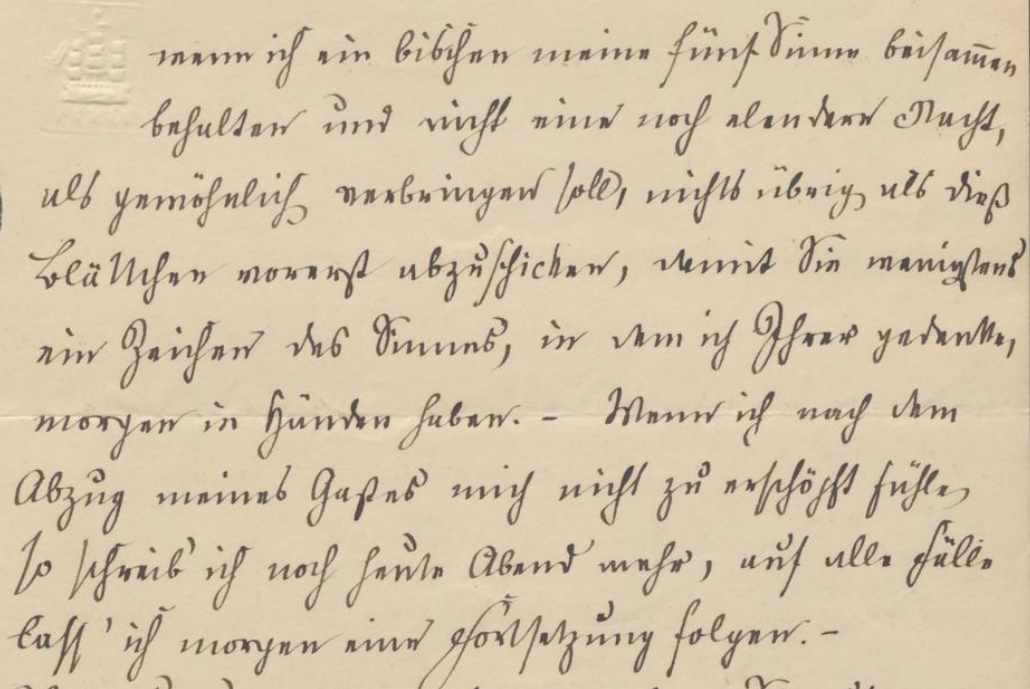 wenn ich ein bischen meine fünf Sinne beisam̅en
behalten und nicht eine noch elendere Nacht,
als gewöhnlich verbringen soll, nichts übrig als dieß
Blättchen vorerst abzuschicken, damit Sie wenigstens
ein Zeichen des Sinnes, in dem ich Ihrer gedenke,
morgen in Händen haben. – Wenn ich nach dem
Abzug meines Gastes mich nicht zu erschöpft fühle,
so schreib' ich noch heute Abend mehr, auf alle Fälle
lass' ich morgen eine Fortsetzung folgen. –